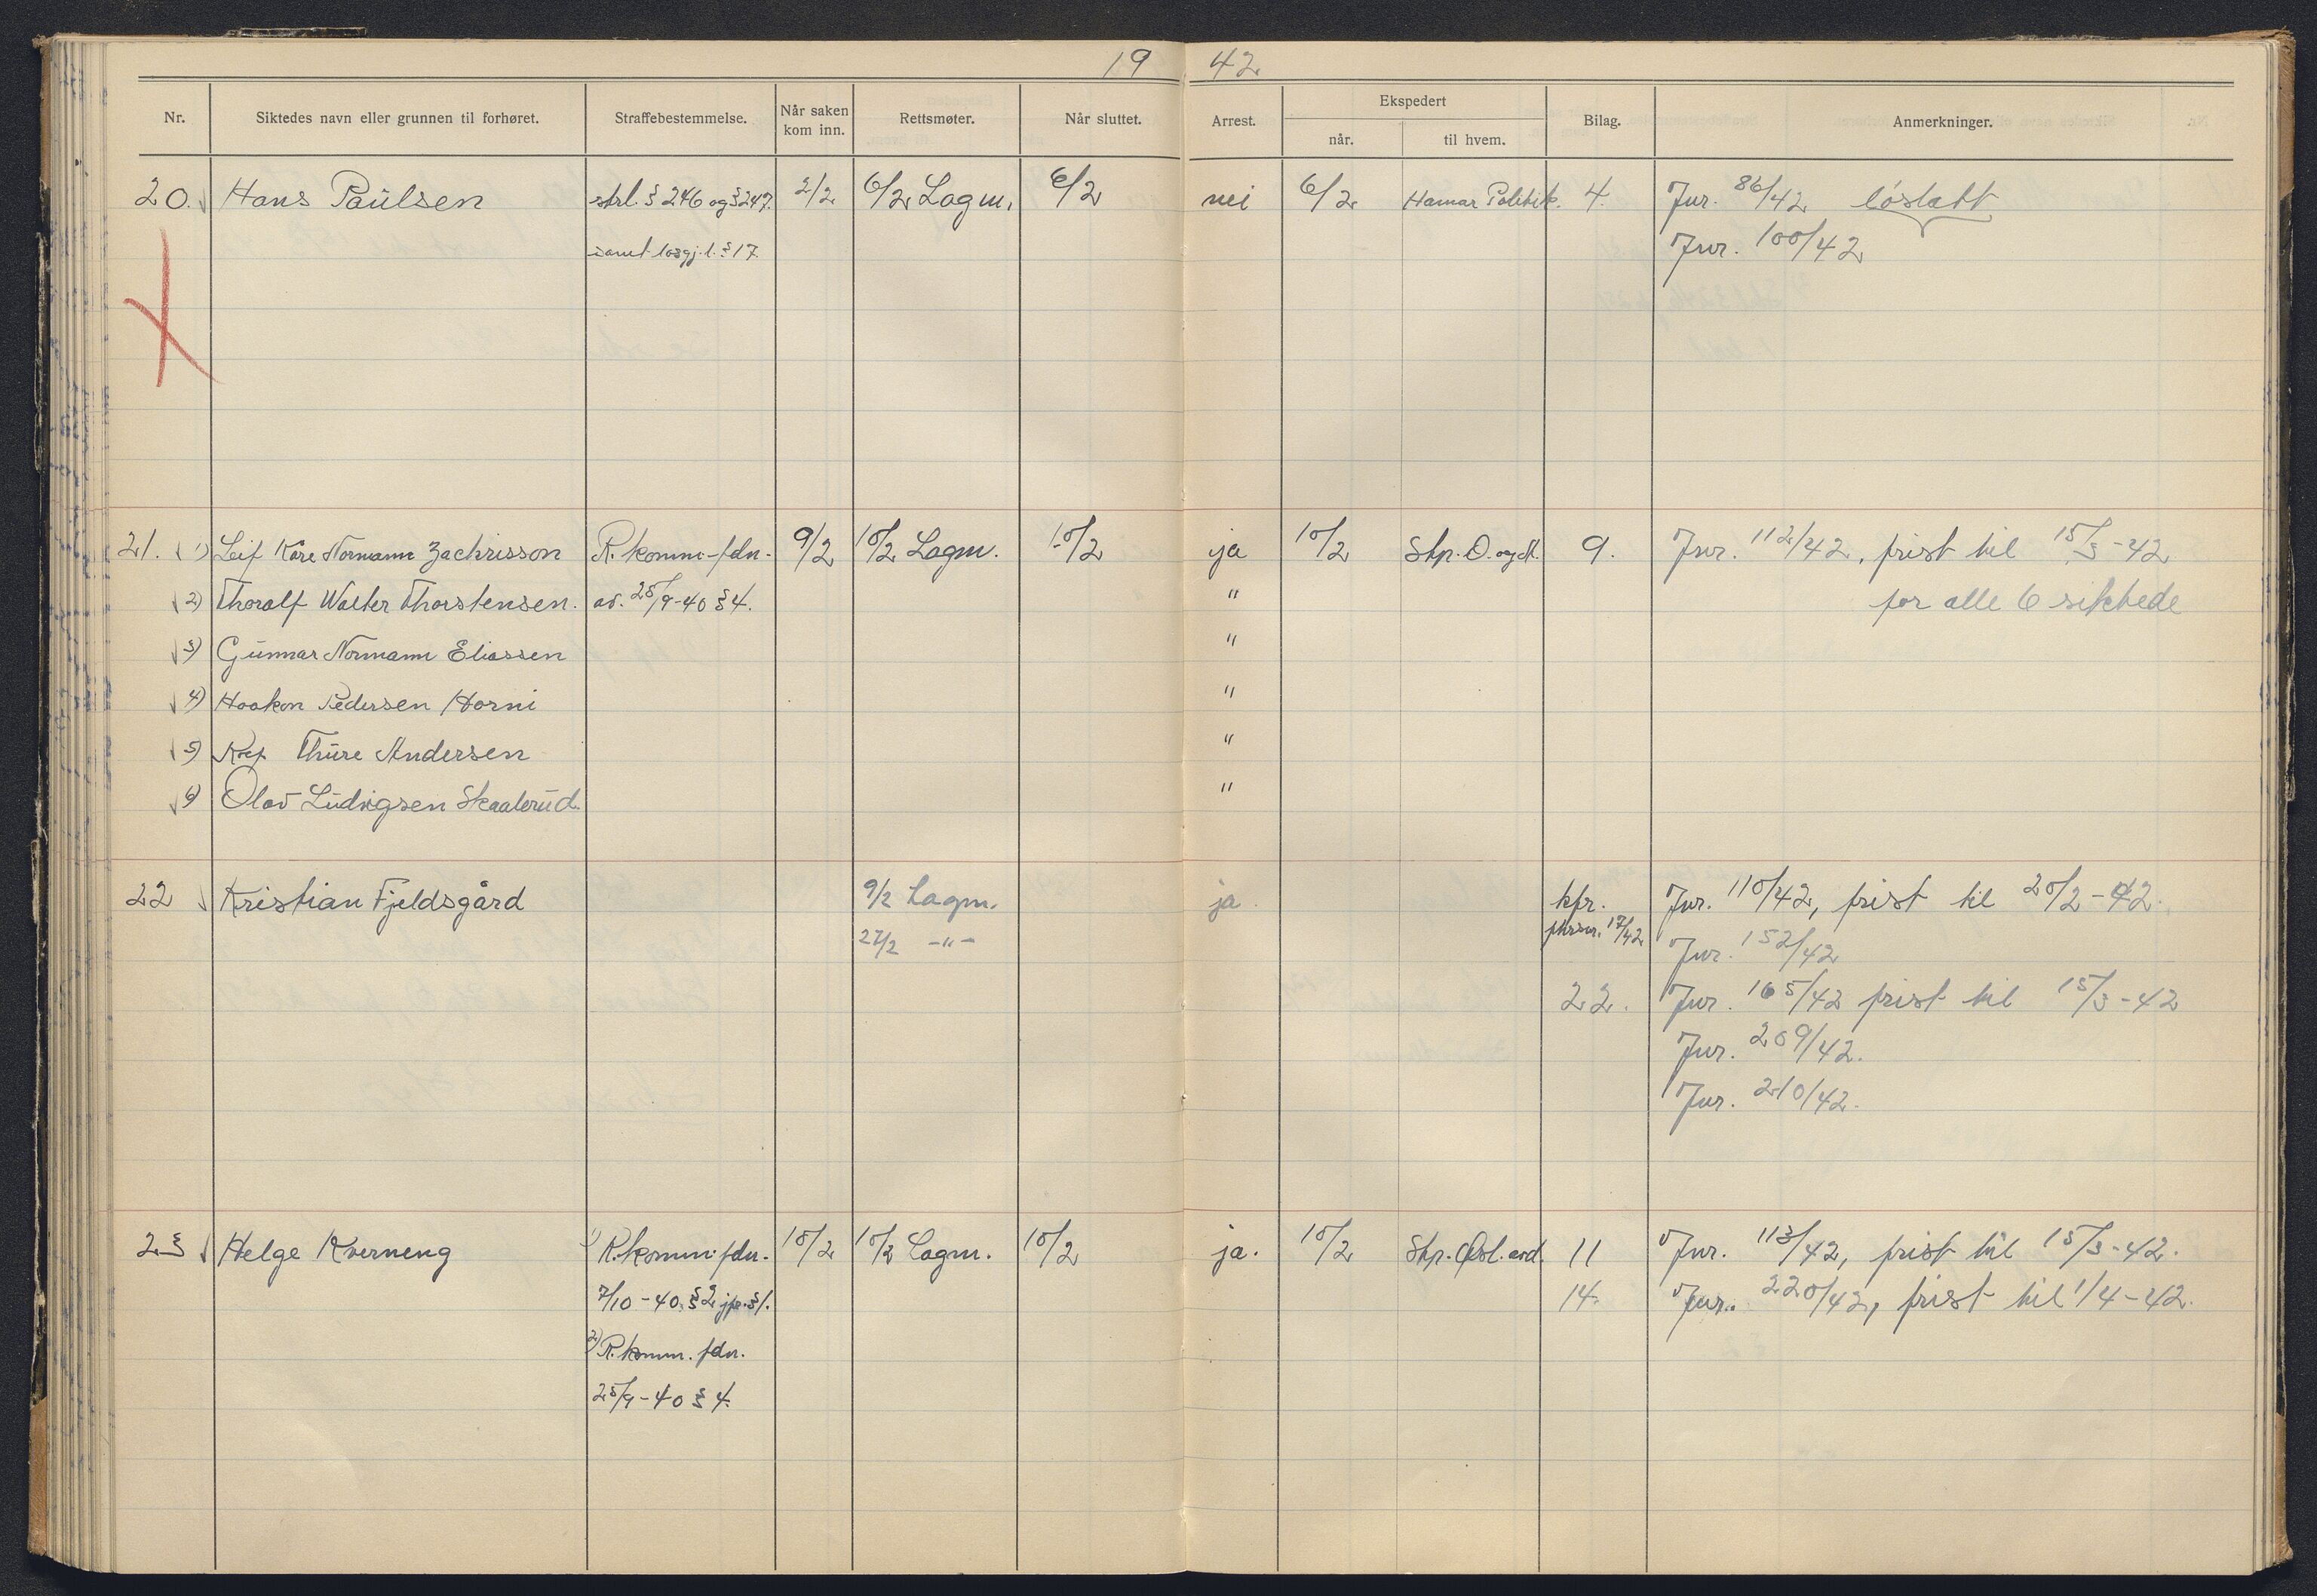 19 42
Nr. Siktedes navn eller grunnen til forhøret. Straffebestemmelse. Når saken kom inn. Rettsmøter. Når sluttet. Arrest. Ekspedert når. til hvem. Bilag. Anmerkninger.
20. Hans Paulsen strl. § 246 og § 247. 2/2 6/2 Lagm. 6/2 nei 6/2 Hamar Politik. 4. Jnr. 86/42 løslatt
samt løsgj.l. § 17. Jnr. 100/42
21. 1) Leif Kåre Normann Zachrisson R. komm-fdn. 9/2 10/2 Lagm. 10/2 ja 10/2 Stp. O. og A. 9. Jnr. 112/42, frist til 15/3-42
2) Thoralf Walter Thorstensen. av. 25/9-40 § 4. " for alle 6 siktede
3) Gunnar Normann Eliassen "
4) Haakon Pedersen Horni "
5) Thure Andersen "
6) Olav Ludvigsen Skaalerud. "
22 Kristian Fjeldsgård 9/2 Lagm. ja kfr. Jnr. 110/42, frist til 20/2-42.
27/2 -"- 17/42 Jnr. 152/42
22. Jnr. 165/42 frist til 15/3-42
Jnr. 209/42.
Jnr. 210/42.
23 Helge Kverneng 1) R. komm. fdn. 10/2 10/2 Lagm. 10/2 ja. 10/2 Stp. Øst. avd. 11 Jnr. 113/42, frist til 15/3-42.
7/10-40. § 2 jfr. § 1. 14. Jnr. 220/42, frist til 1/4-42.
2) R. komm. fdn.
25/9-40 § 4.